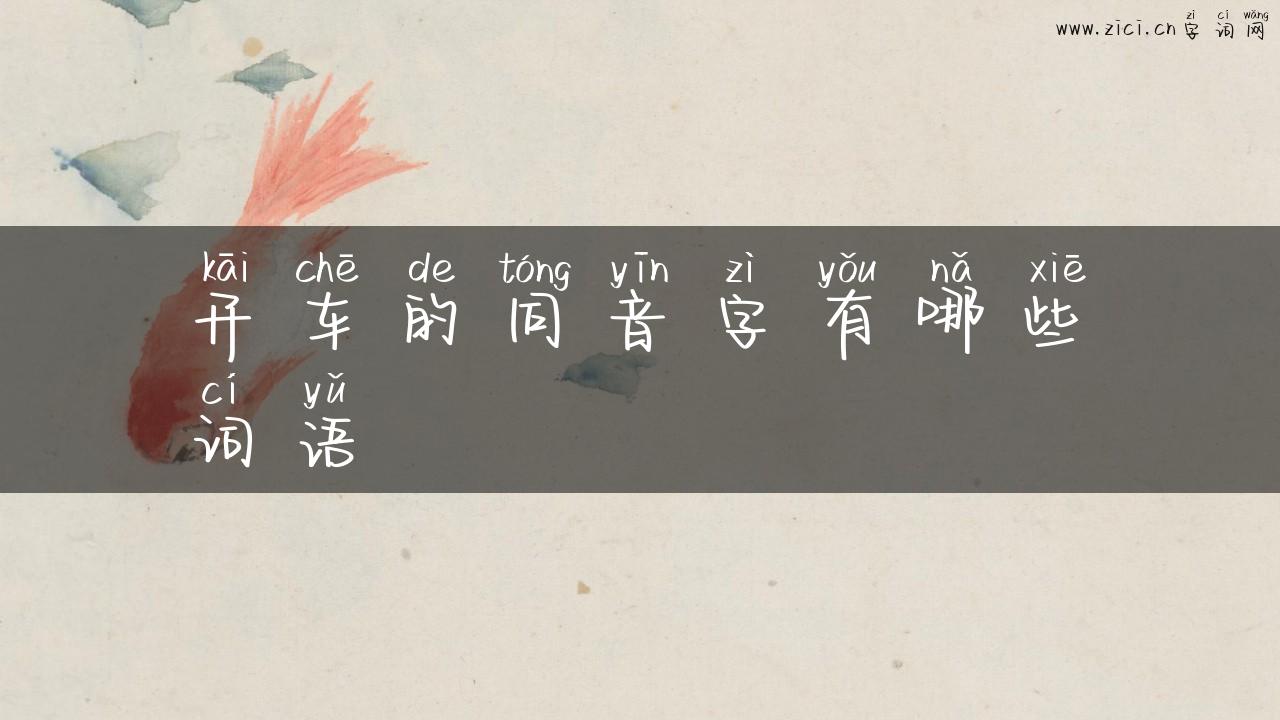 zì cí wǎng
www.zici.cn 字 词 网
kāi chē de tóng yīn zì yǒu nǎ xiē
开 车 的 同 音 字 有 哪 些
cí yǔ
词 语